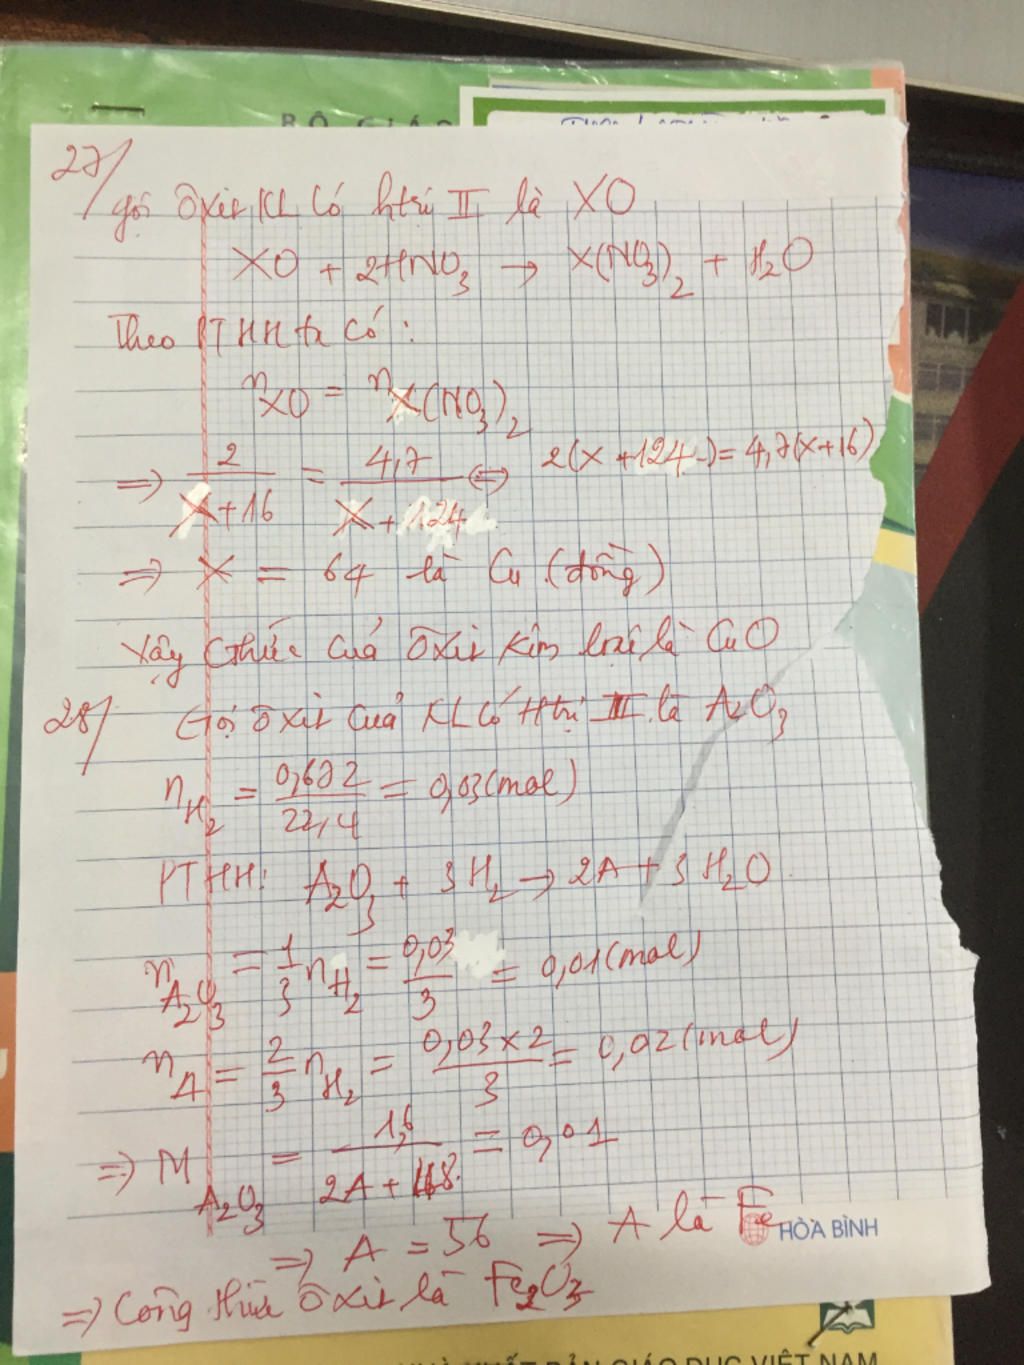 BỘ GIÁO
27/
gọi Ôxit KL Có htrị II là XO
XO + 2HNO3 → X(NO3)2 + H2O
Theo PTHH ta Có:
nXO = nX(NO3)2
⇒ 2/(X+16) = 4,7/(X+124) ⇔ 2(X+124) = 4,7(X+16)
⇒ X = 64 là Cu (đồng)
Vậy Cthức Của Ôxit Kim loại là CuO
28/ Gọi Ôxit Của KL Có Htrị III là A2O3
nH2 = 0,672/22,4 = 0,03(mol)
PTHH: A2O3 + 3H2 → 2A + 3H2O
nA2O3 = 1/3 nH2 = 0,03/3 = 0,01(mol)
nA = 2/3 nH2 = 0,03×2/3 = 0,02(mol)
⇒ MA2O3 = 1,6/(2A+48) = 0,01
⇒ A = 56 ⇒ A là Fe
HÒA BÌNH
⇒ Công thức Ôxit là Fe2O3
NHÀ XUẤT BẢN GIÁO DỤC VIỆT NAM